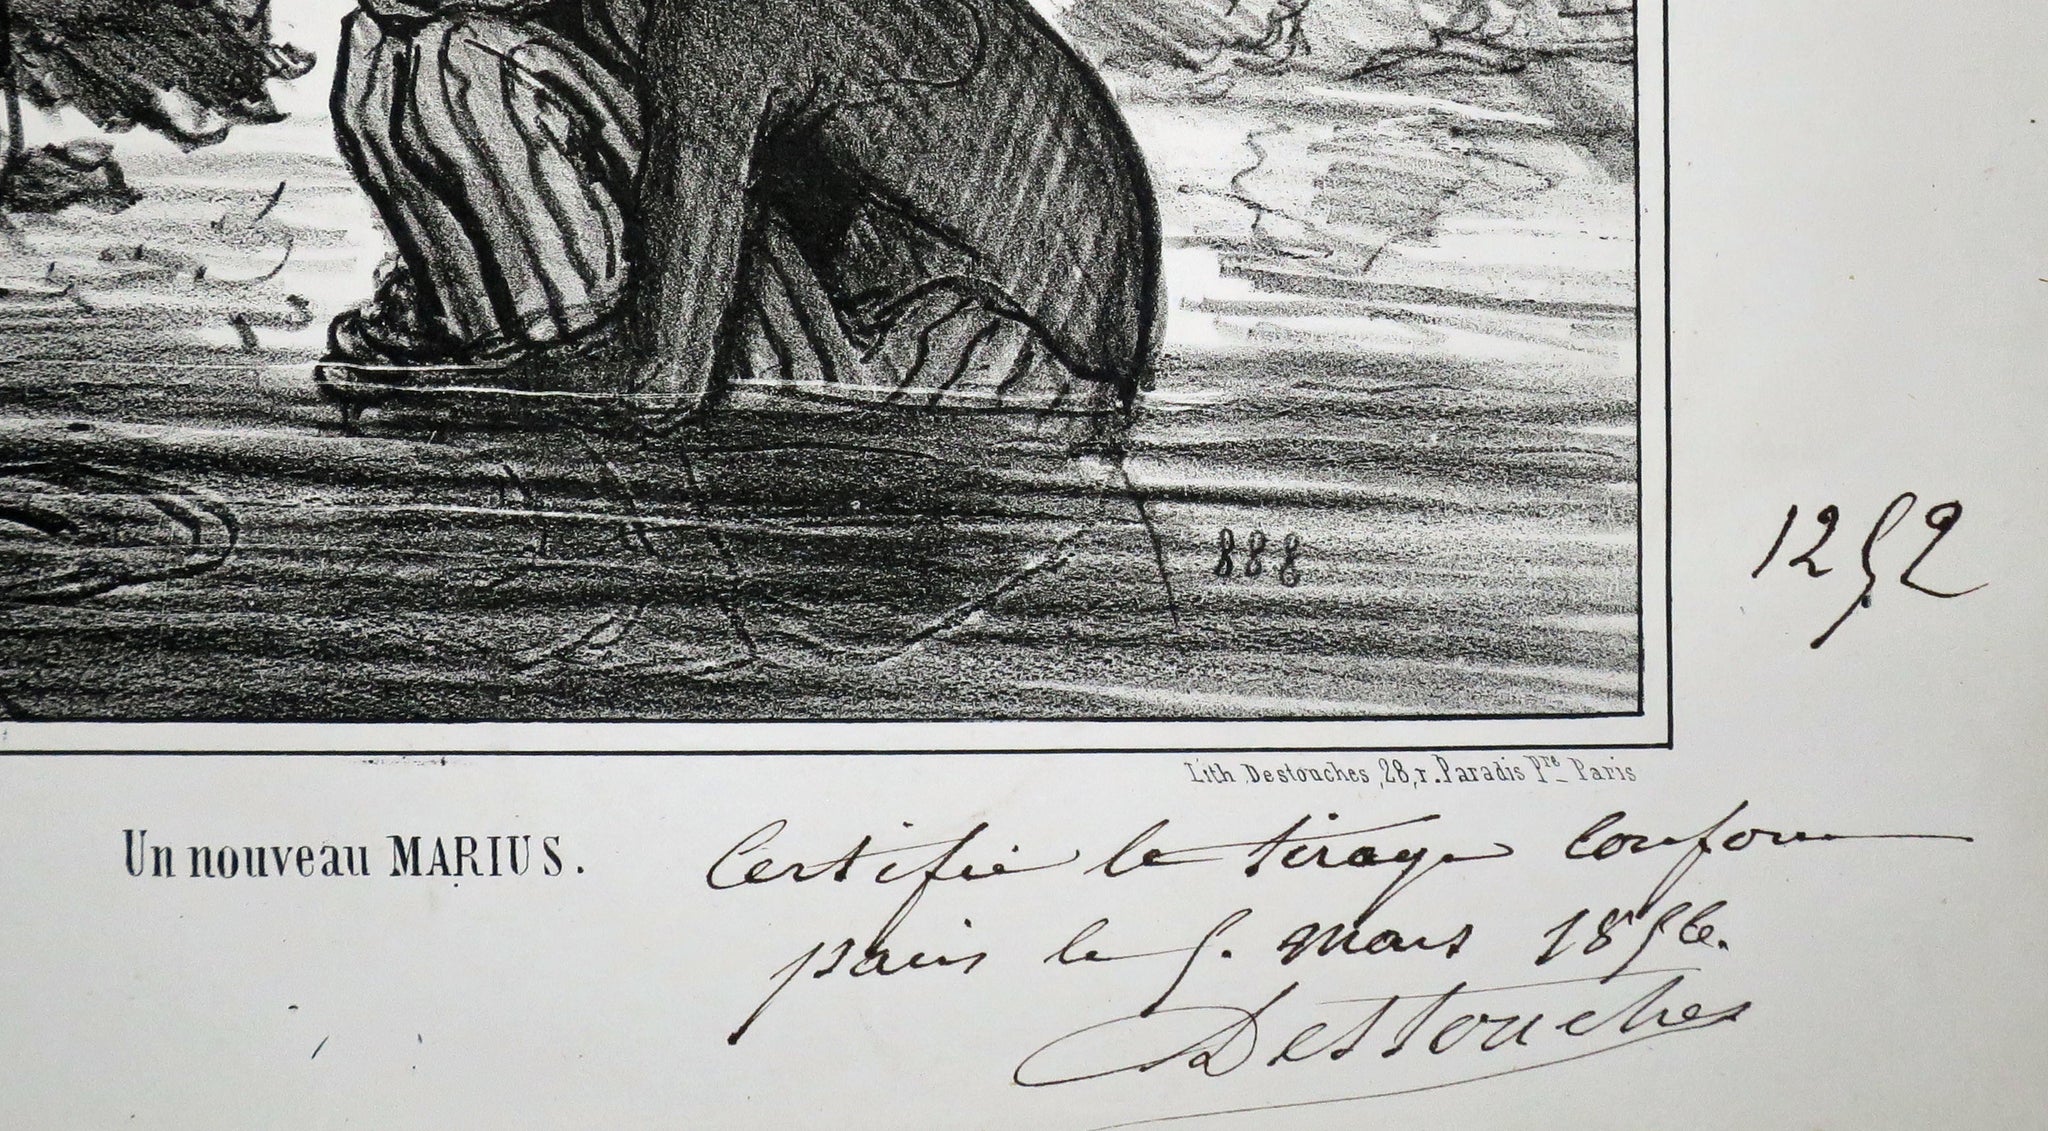 888
1252
Lith. Destouches, 28, r. Paradis Pre Paris
Un nouveau MARIUS.
Certifié le tirage conforme
paris le 5. mars 1856.
Destouches